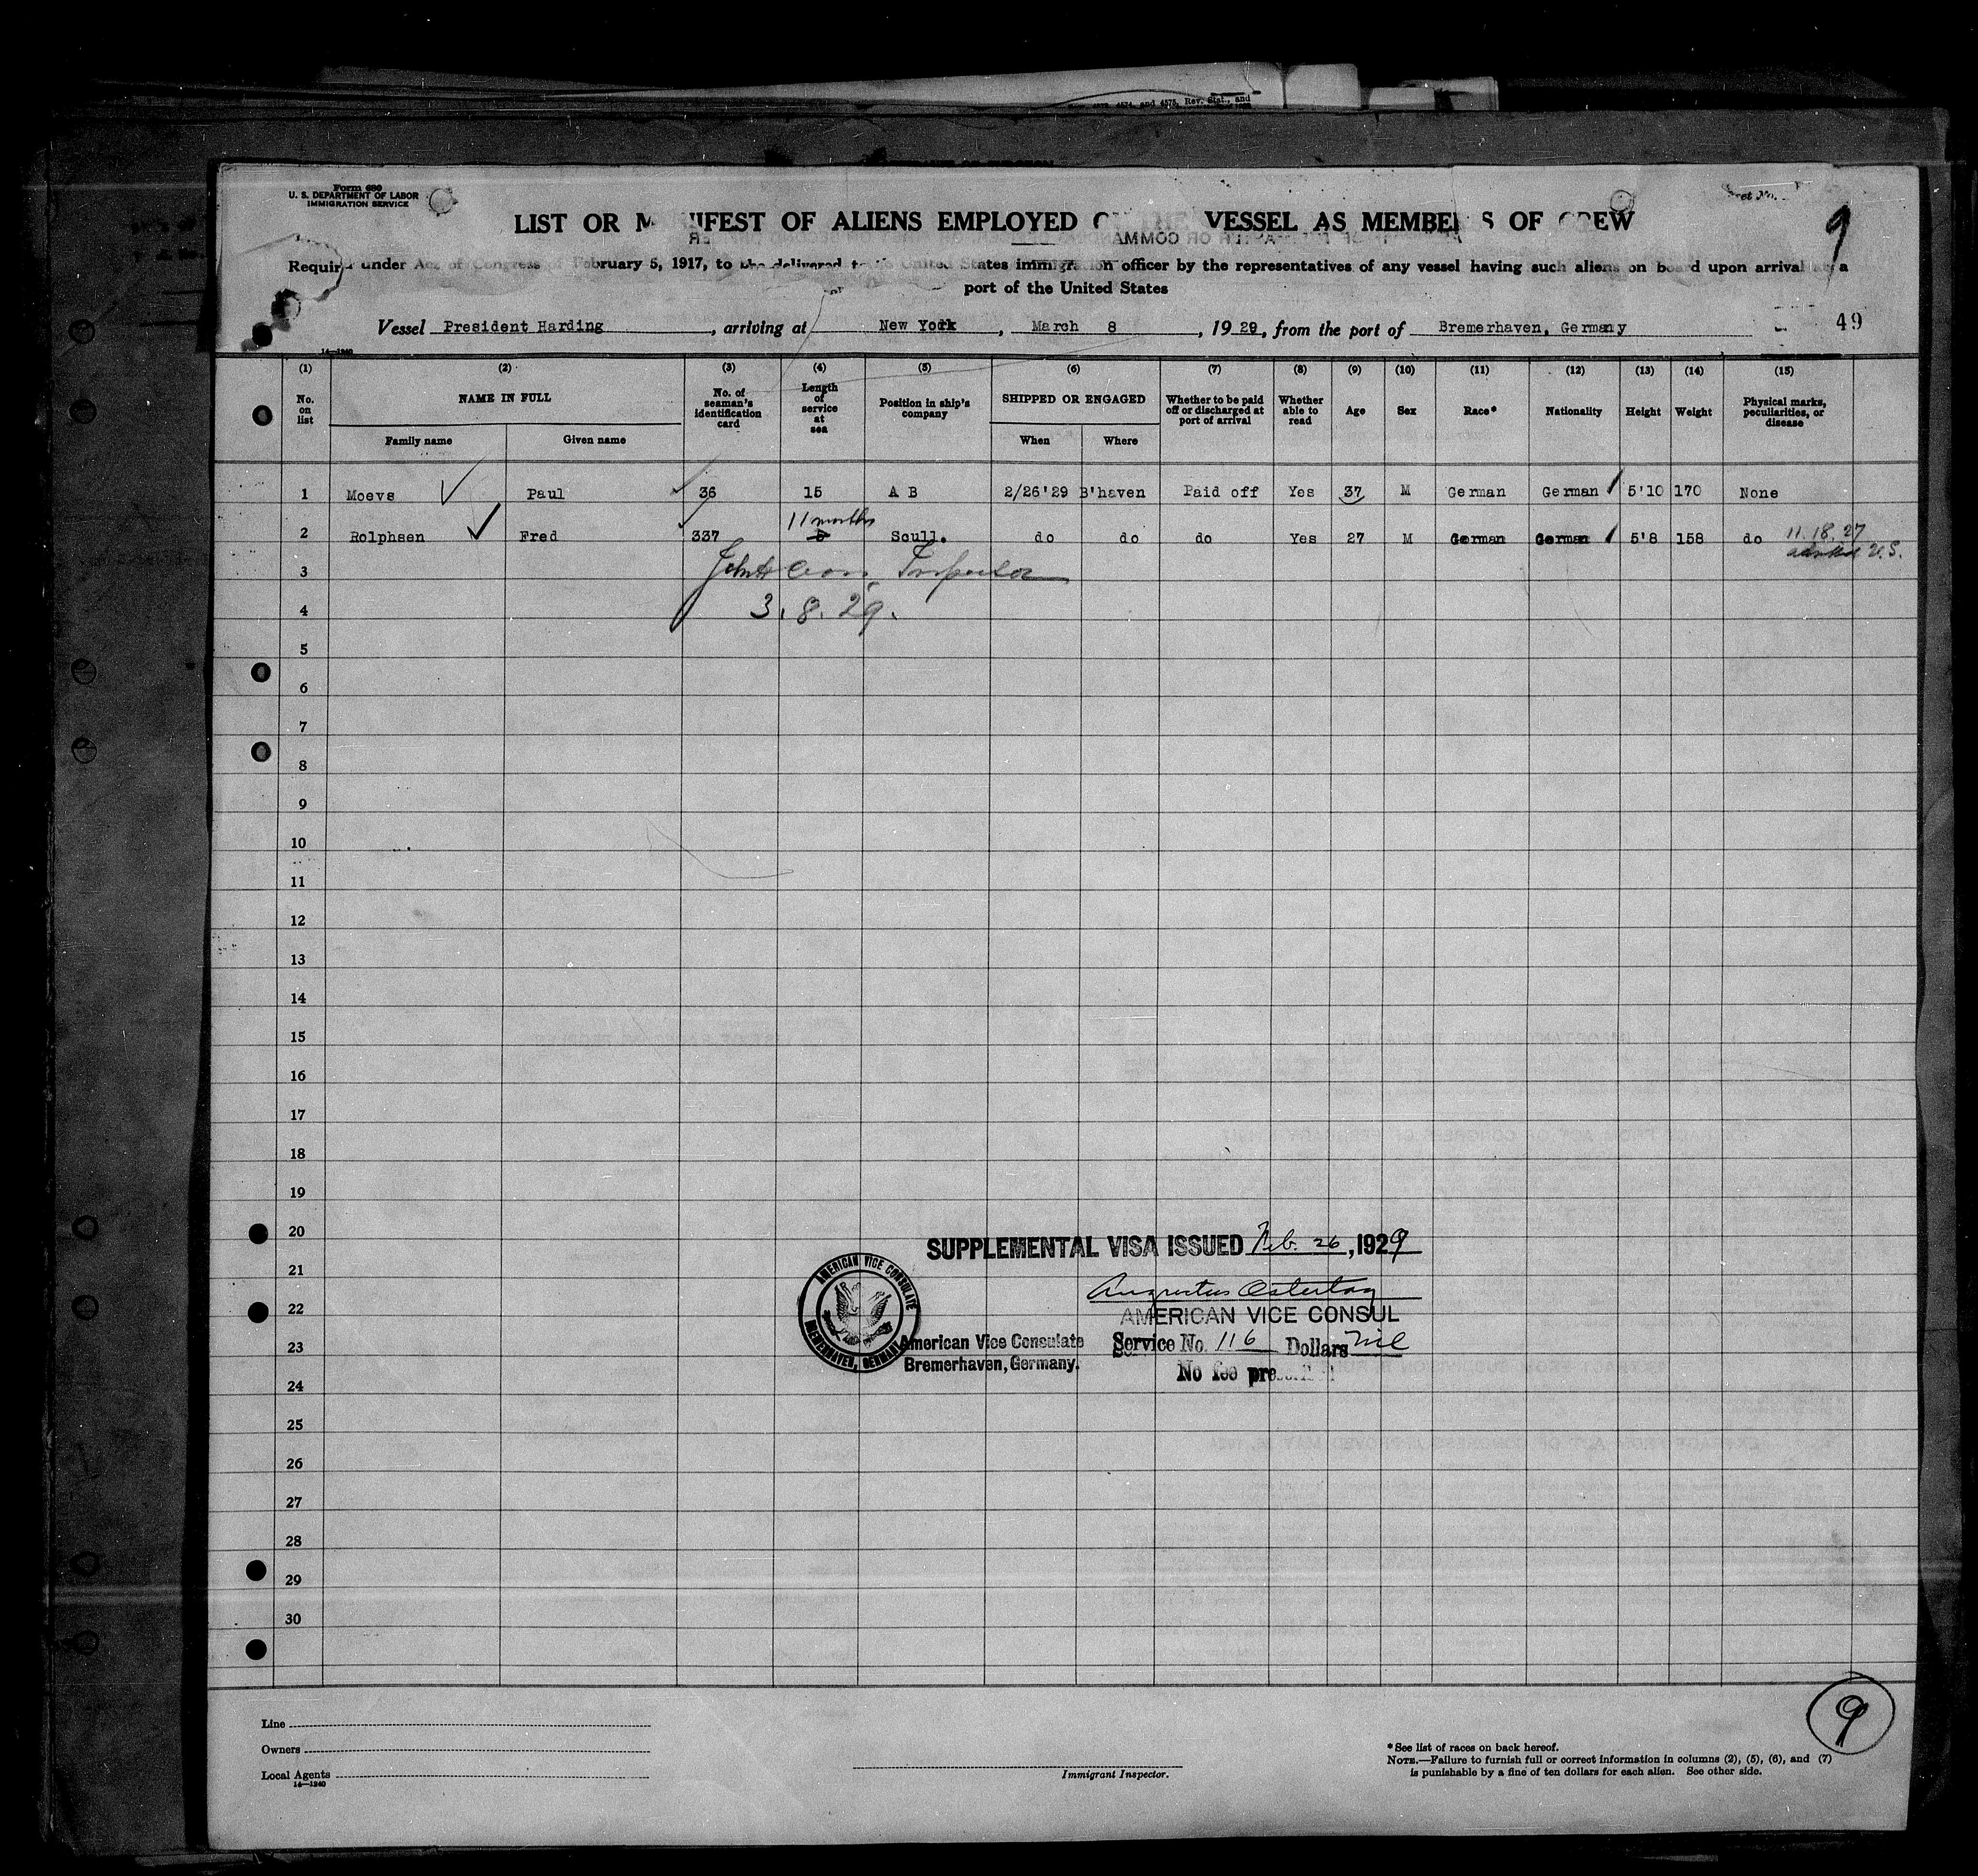 4574, and 4575, Rev. Stat., and
Form 689
U. S. DEPARTMENT OF LABOR
IMMIGRATION SERVICE
LIST OR M IFEST OF ALIENS EMPLOYED O VESSEL AS MEMBE S OF CREW
9
Requir under Act of Congress of February 5, 1917, to be delivered to United States immigration officer by the representatives of any vessel having such aliens on board upon arrival at a
port of the United States
Vessel President Harding, arriving at New York, March 8, 1929, from the port of Bremerhaven, Germany 49
14—1240
(1) (2) (3) (4) (5) (6) (7) (8) (9) (10) (11) (12) (13) (14) (15)
No. on list NAME IN FULL No. of seaman's identification card Length of service at sea Position in ship's company SHIPPED OR ENGAGED Whether to be paid off or discharged at port of arrival Whether able to read Age Sex Race* Nationality Height Weight Physical marks, peculiarities, or disease
Family name Given name When Where
1 Moevs Paul 36 15 A B 2/26'29 B'haven Paid off Yes 37 M German German 5'10 170 None
11 months
2 Rolphsen Fred 337 5 Scull. do do do Yes 27 M German German 5'8 158 do 11.18.27
U.S.
3 Inspector
4 3.8.29.
5
6
7
8
9
10
11
12
13
14
15
16
17
18
19
20
SUPPLEMENTAL VISA ISSUED Feb. 26, 1929
21
Augustus Ostertag
22
AMERICAN VICE CONSUL
AMERICAN VICE CONSULATE
BREMERHAVEN, GERMANY
23
American Vice Consulate Service No. 116 Dollars Nil
Bremerhaven, Germany.
No fee pre
24
25
26
27
28
29
30
9
Line
Owners
Local Agents
14—1240
Immigrant Inspector.
*See list of races on back hereof.
NOTE.—Failure to furnish full or correct information in columns (2), (5), (6), and (7)
is punishable by a fine of ten dollars for each alien. See other side.